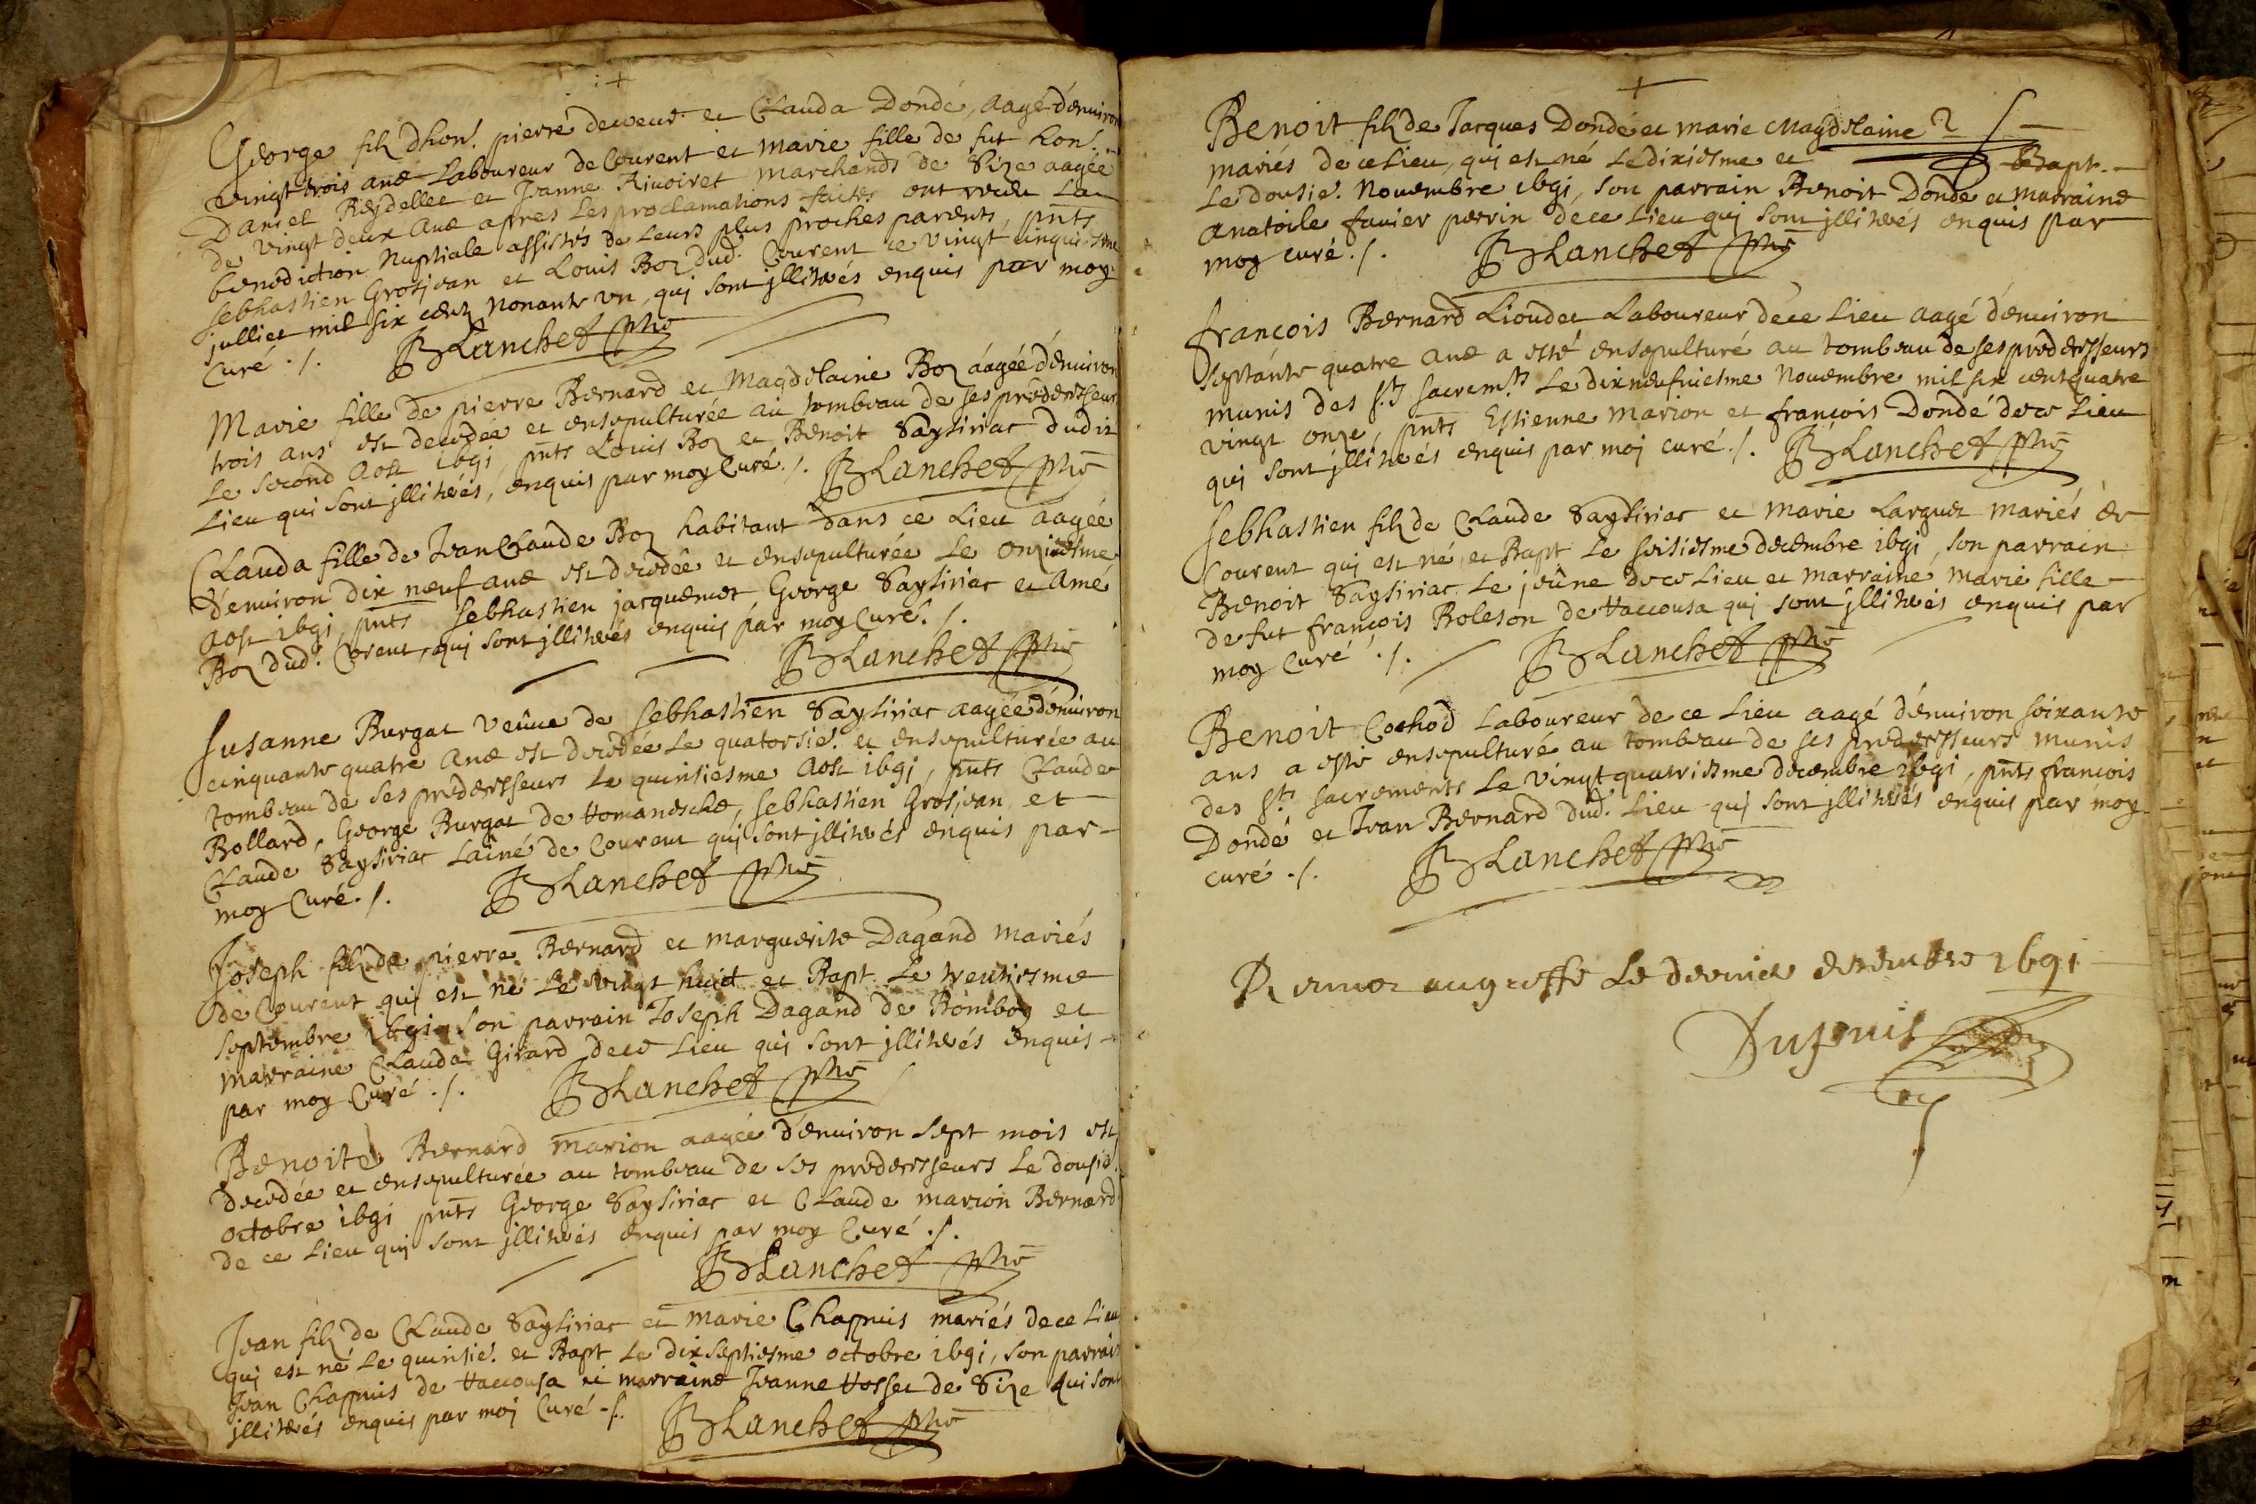 George filz dhon. pierre deveur et Clauda Dondé, aagé d'environ
vingt trois ans Laboureur de Courent et marie fille de fut hon.
Daniel Reydellet et Jeanne Rivoiret marchands de Size aagée
de vingt deux ans apres Les proclamations faites ont receu La
benediction Nuptiale assistés de Leurs plus proches parents, pnts
sebhastien Grosjean et Louis Boz dud. Courent ce vingt cinquiesme
julliet mil six centz nonante un, qui sont jllitrés enquis par moy
Curé ./. Blanchet pbre
Marie fille de pierre Bernard et Magdelaine Boz aagée d'environ
trois ans est decedée et ensepulturée au tombeau de ses predecesseurs
Le second Aost 1691, pnts Louis Boz et Benoit Saysiriac dudit
Lieu qui sont jllitrés, enquis par moy Curé ./. Blanchet pbre
Clauda fille de Jean Claude Boz habitant dans ce Lieu aagée
d'environ dix neuf ans est decedée et ensepulturée Le onziesme
Aost 1691, pnts sebhastien jacquemet George Saysiriac et Amé
Boz dud. Corent, qui sont jllitrés enquis par moy Curé ./.
Blanchet pbre
Susanne Burgat veüve de sebhastien Saysiriac aagée d'environ
cinquante quatre ans est decedée Le quatorsie. et ensepulturée au
tombeau de ses predecesseurs Le quinsiesme Aost 1691, pnts Claude
Bollard, George Burgat de Homanesche, sebhastien Grosjean et
Claude Saysiriac Lainé de Courent qui sont jllitrés enquis par
moy Curé ./. Blanchet pbre
Joseph filz de pierre Bernard et marguerite Dagand mariés
de Courent qui est né Le vingt huict et Bapt. Le trentiesme
septembre 1691, son parrain Joseph Dagand de Bomboy et
marraine Clauda Girard de ce Lieu qui sont jllitrés enquis
par moy Curé ./. Blanchet pbre
Benoite Bernard marion aagée d'environ sept mois est
decedée et ensepulturée au tombeau de ses predecesseurs Le dousie.
octobre 1691 pnts George Saysiriac et Claude marion Bernard
de ce Lieu qui sont jllitrés enquis par moy Curé ./.
Blanchet pbre
Jean filz de Claude Saysiriac et marie Chapuis mariés de ce Lieu
qui est né Le quinsie. et Bapt Le dix septiesme octobre 1691, son parrain
Jean Chapuis de Haccousa et marraine Jeanne Hosset de Size qui sont
jllitrés enquis par moj Curé ./. Blanchet pbre
Benoit filz de Jacques Dondé et marie Magdelaine
mariés de ce Lieu, qui est né Le dixiesme et Bapt.
Le dousie. Novembre 1691, son parrain Benoit Dondé et marraine
Anatoile favier perrin de ce Lieu qui sont jllitrés enquis par
moy curé ./. Blanchet pbre
françois Bernard Lioudet Laboureur de ce Lieu aagé d'environ
septante quatre ans a esté ensepulturé au tombeau de ses predecesseurs
munis des sts sacremts Le dix neufviesme Novembre mil six cent quatre
vingt onze, pnts Estienne marion et françois Dondé de ce Lieu
qui sont jllitrés enquis par moj curé ./. Blanchet pbre
sebhastien filz de Claude Saysiriac et marie Larguet mariés de
Courent qui est né et Bapt Le seisiesme decembre 1691, son parrain
Benoit Saysiriac Le jeûne de ce Lieu et marraine marie fille
de fut françois Boleson de Haccousa qui sont jllitrés enquis par
moy Curé ./. Blanchet pbre
Benoit Cochod Laboureur de ce Lieu aagé d'environ soixante
ans a esté ensepulturé au tombeau de ses predecesseurs munis
des sts sacrements Le vingt quatriesme decembre 1691, pnts françois
Dondé et Jean Bernard dud. Lieu qui sont jllitrés enquis par moy
curé ./. Blanchet pbre
au greffe Le dernier decembre 1691
Dupuis